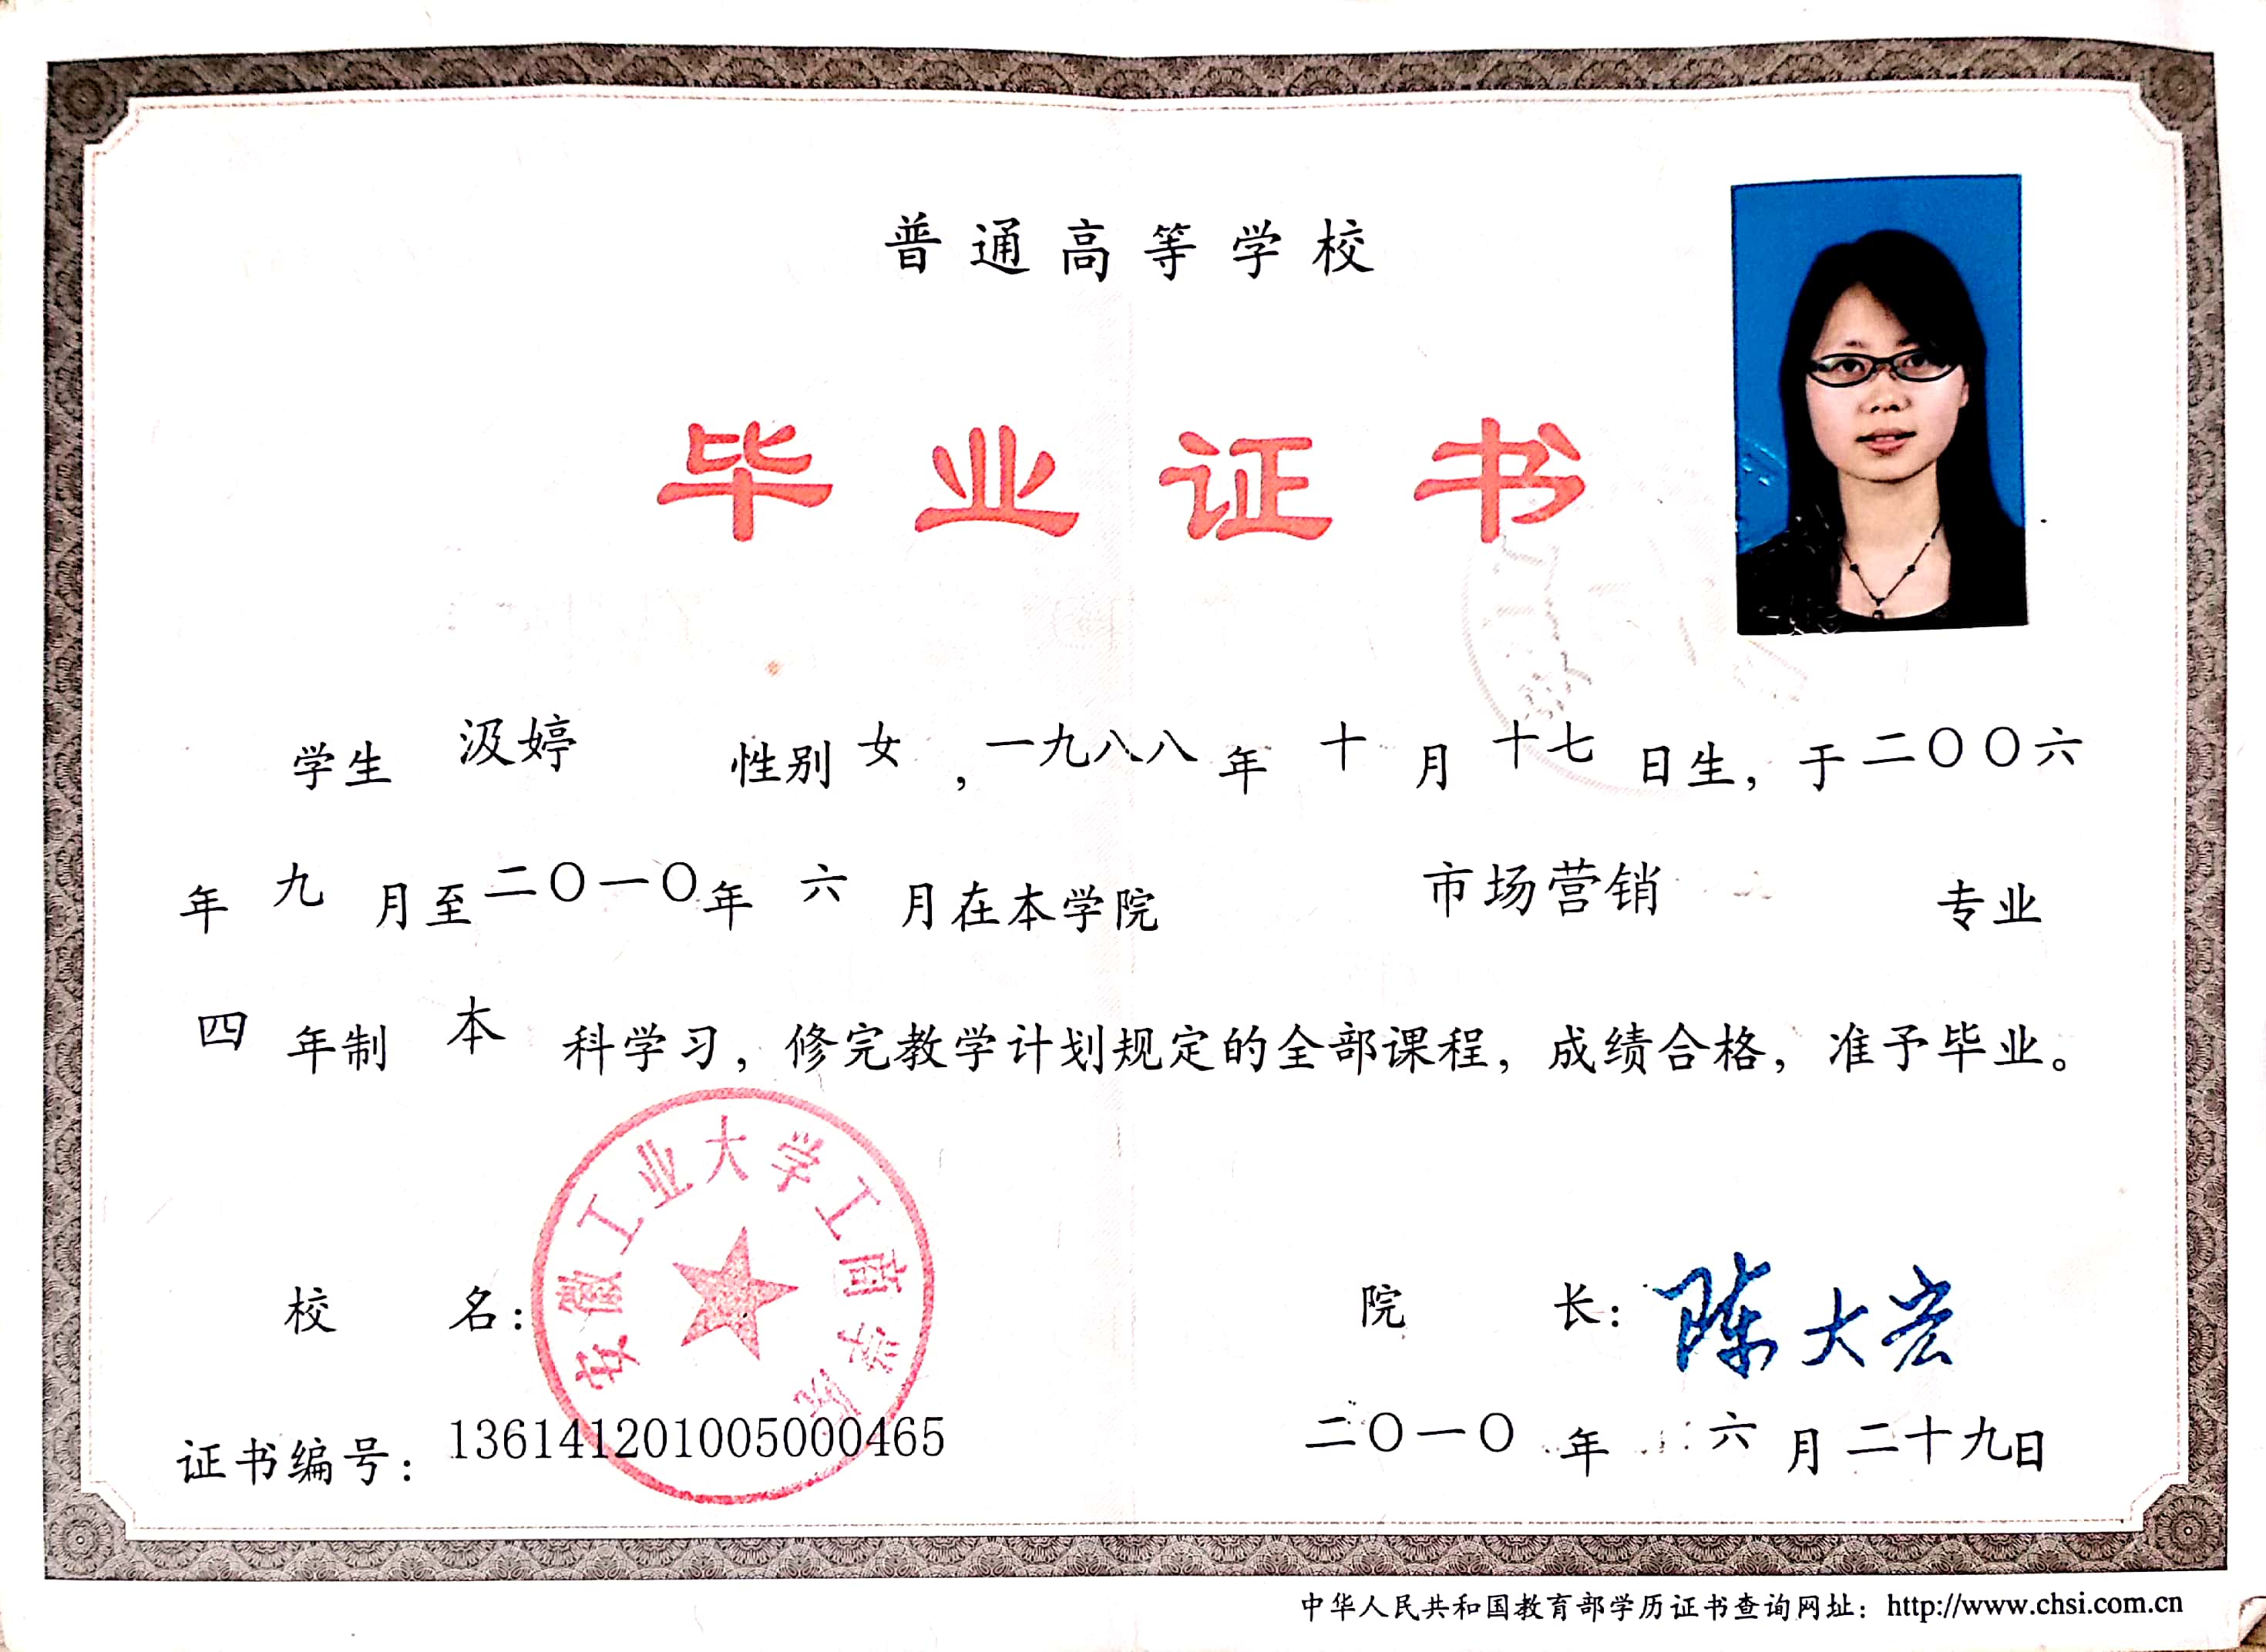 普通高等学校
毕业证书
学生 汲婷 性别 女，一九八八年 十 月 十七 日生，于二〇〇六
年 九 月至二〇一〇年 六 月在本学院 市场营销 专业
四 年制 本 科学习，修完教学计划规定的全部课程，成绩合格，准予毕业。
安徽工业大学工商学院
校 名：
院 长：陈大宏
证书编号：136141201005000465
二〇一〇 年 六 月 二十九日
中华人民共和国教育部学历证书查询网址：http://www.chsi.com.cn